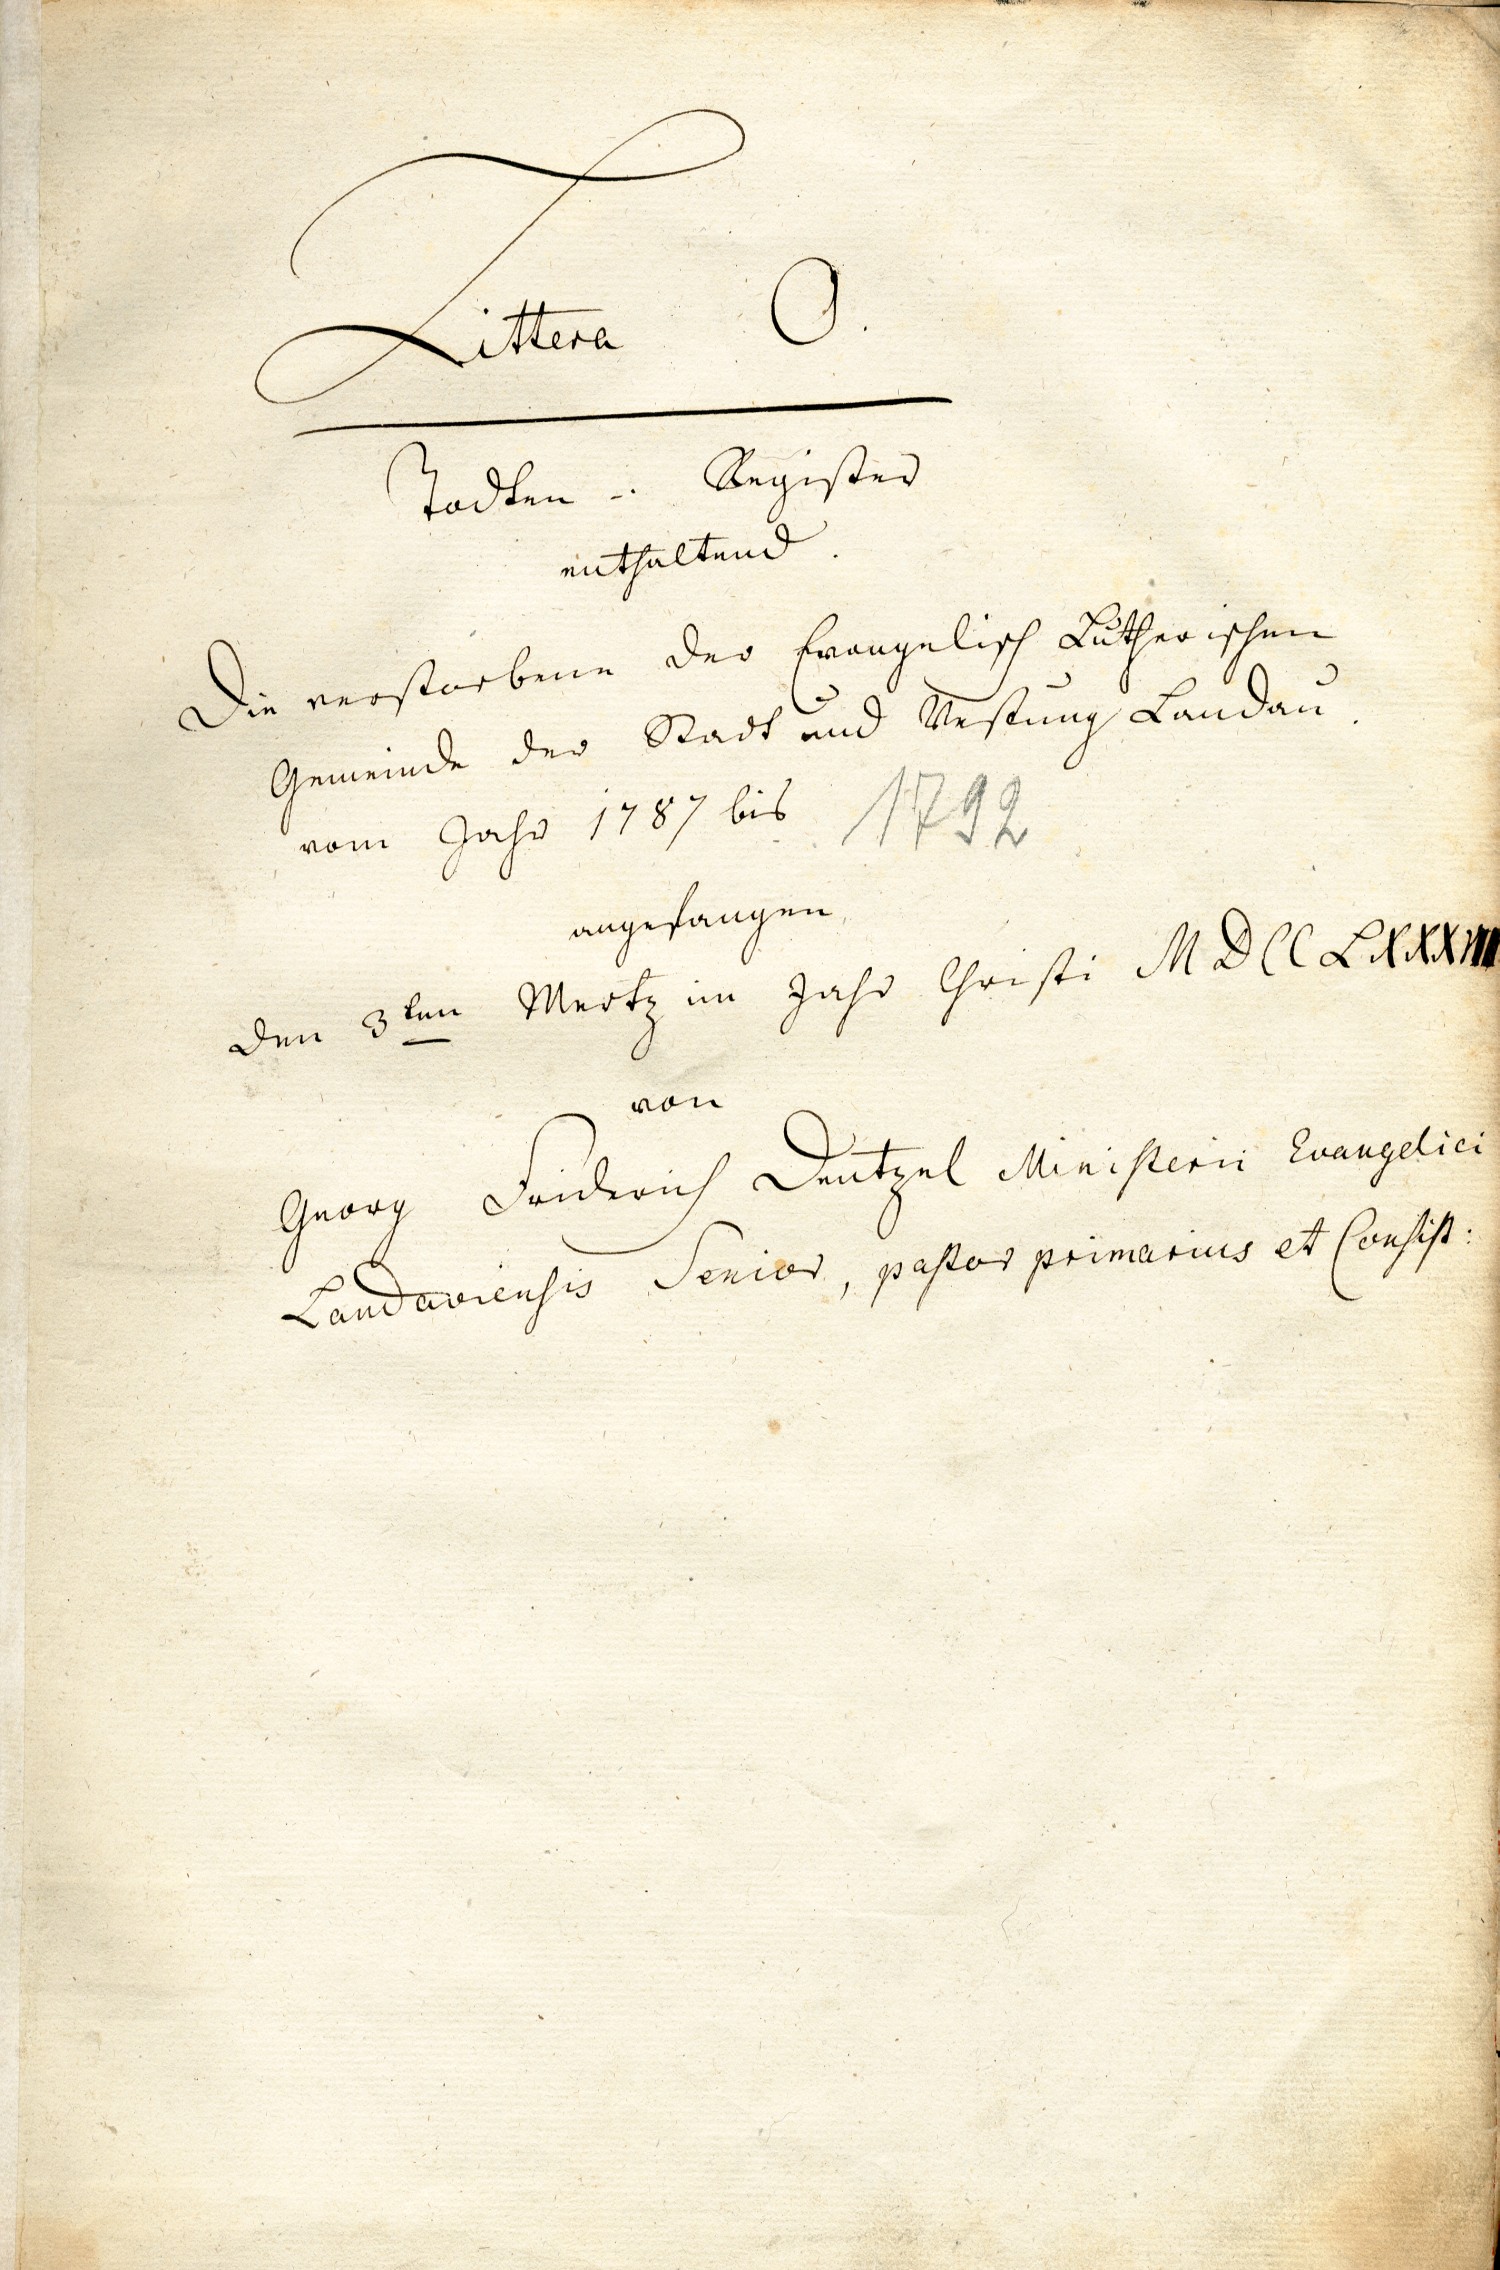 Littera O.
Todten-Register
enthaltend.
Die verstorbene der Evangelisch Lutherischen
Gemeinde der Stadt und Vestung Landau.
vom Jahr 1787 bis 1792
angefangen
den 3ten Mertz im Jahr Christi MDCCLXXXVII
von
Georg Friderich Dentzel Ministerii Evangelici
Landaviensis Senior, pastor primarius et Consist: